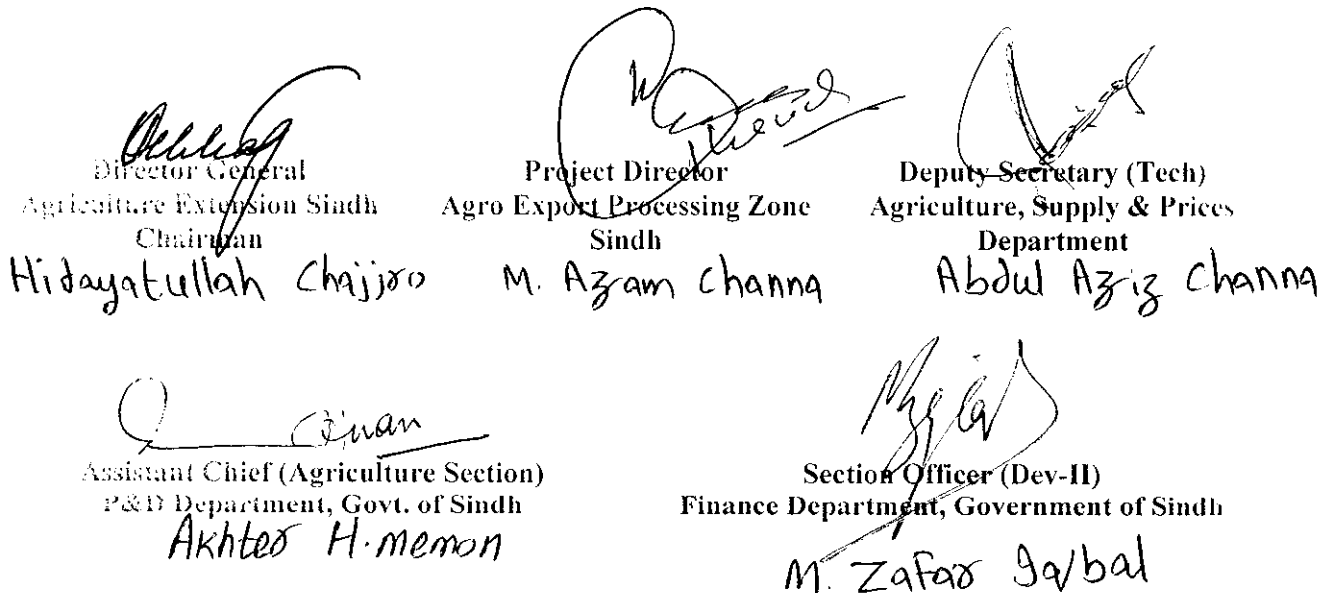 Director General
Agriculture Extension Sindh
Chairman
Hidayatullah Chajjro
Project Director
Agro Export Processing Zone
Sindh
M. Azam Channa
Deputy Secretary (Tech)
Agriculture, Supply & Prices
Department
Abdul Aziz Channa
Assistant Chief (Agriculture Section)
P&D Department, Govt. of Sindh
Akhter H. memon
Section Officer (Dev-II)
Finance Department, Government of Sindh
M. Zafar Iqbal